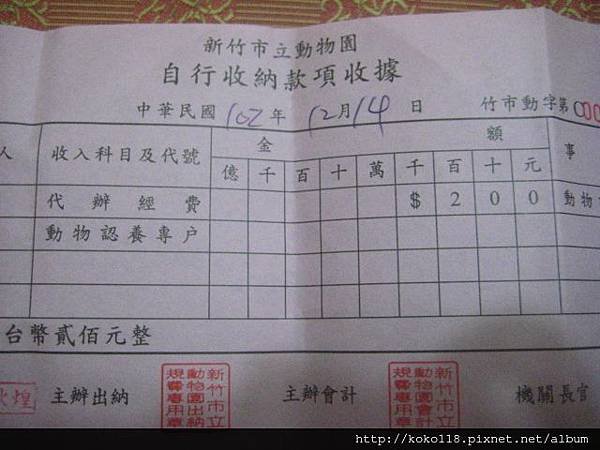 新竹市立動物園
自行收納款項收據
中華民國 102 年 12 月 14 日 竹市動字第000
人 收入科目及代號 金 額 事
億 千 百 十 萬 千 百 十 元
代辦經費 $ 2 0 0 動物
動物認養專戶
台幣貳佰元整
煌 主辦出納 新竹市立動物園出納規費專用章 主辦會計 新竹市立動物園會計規費專用章 機關長官
http://koko118.pixnet.net/album